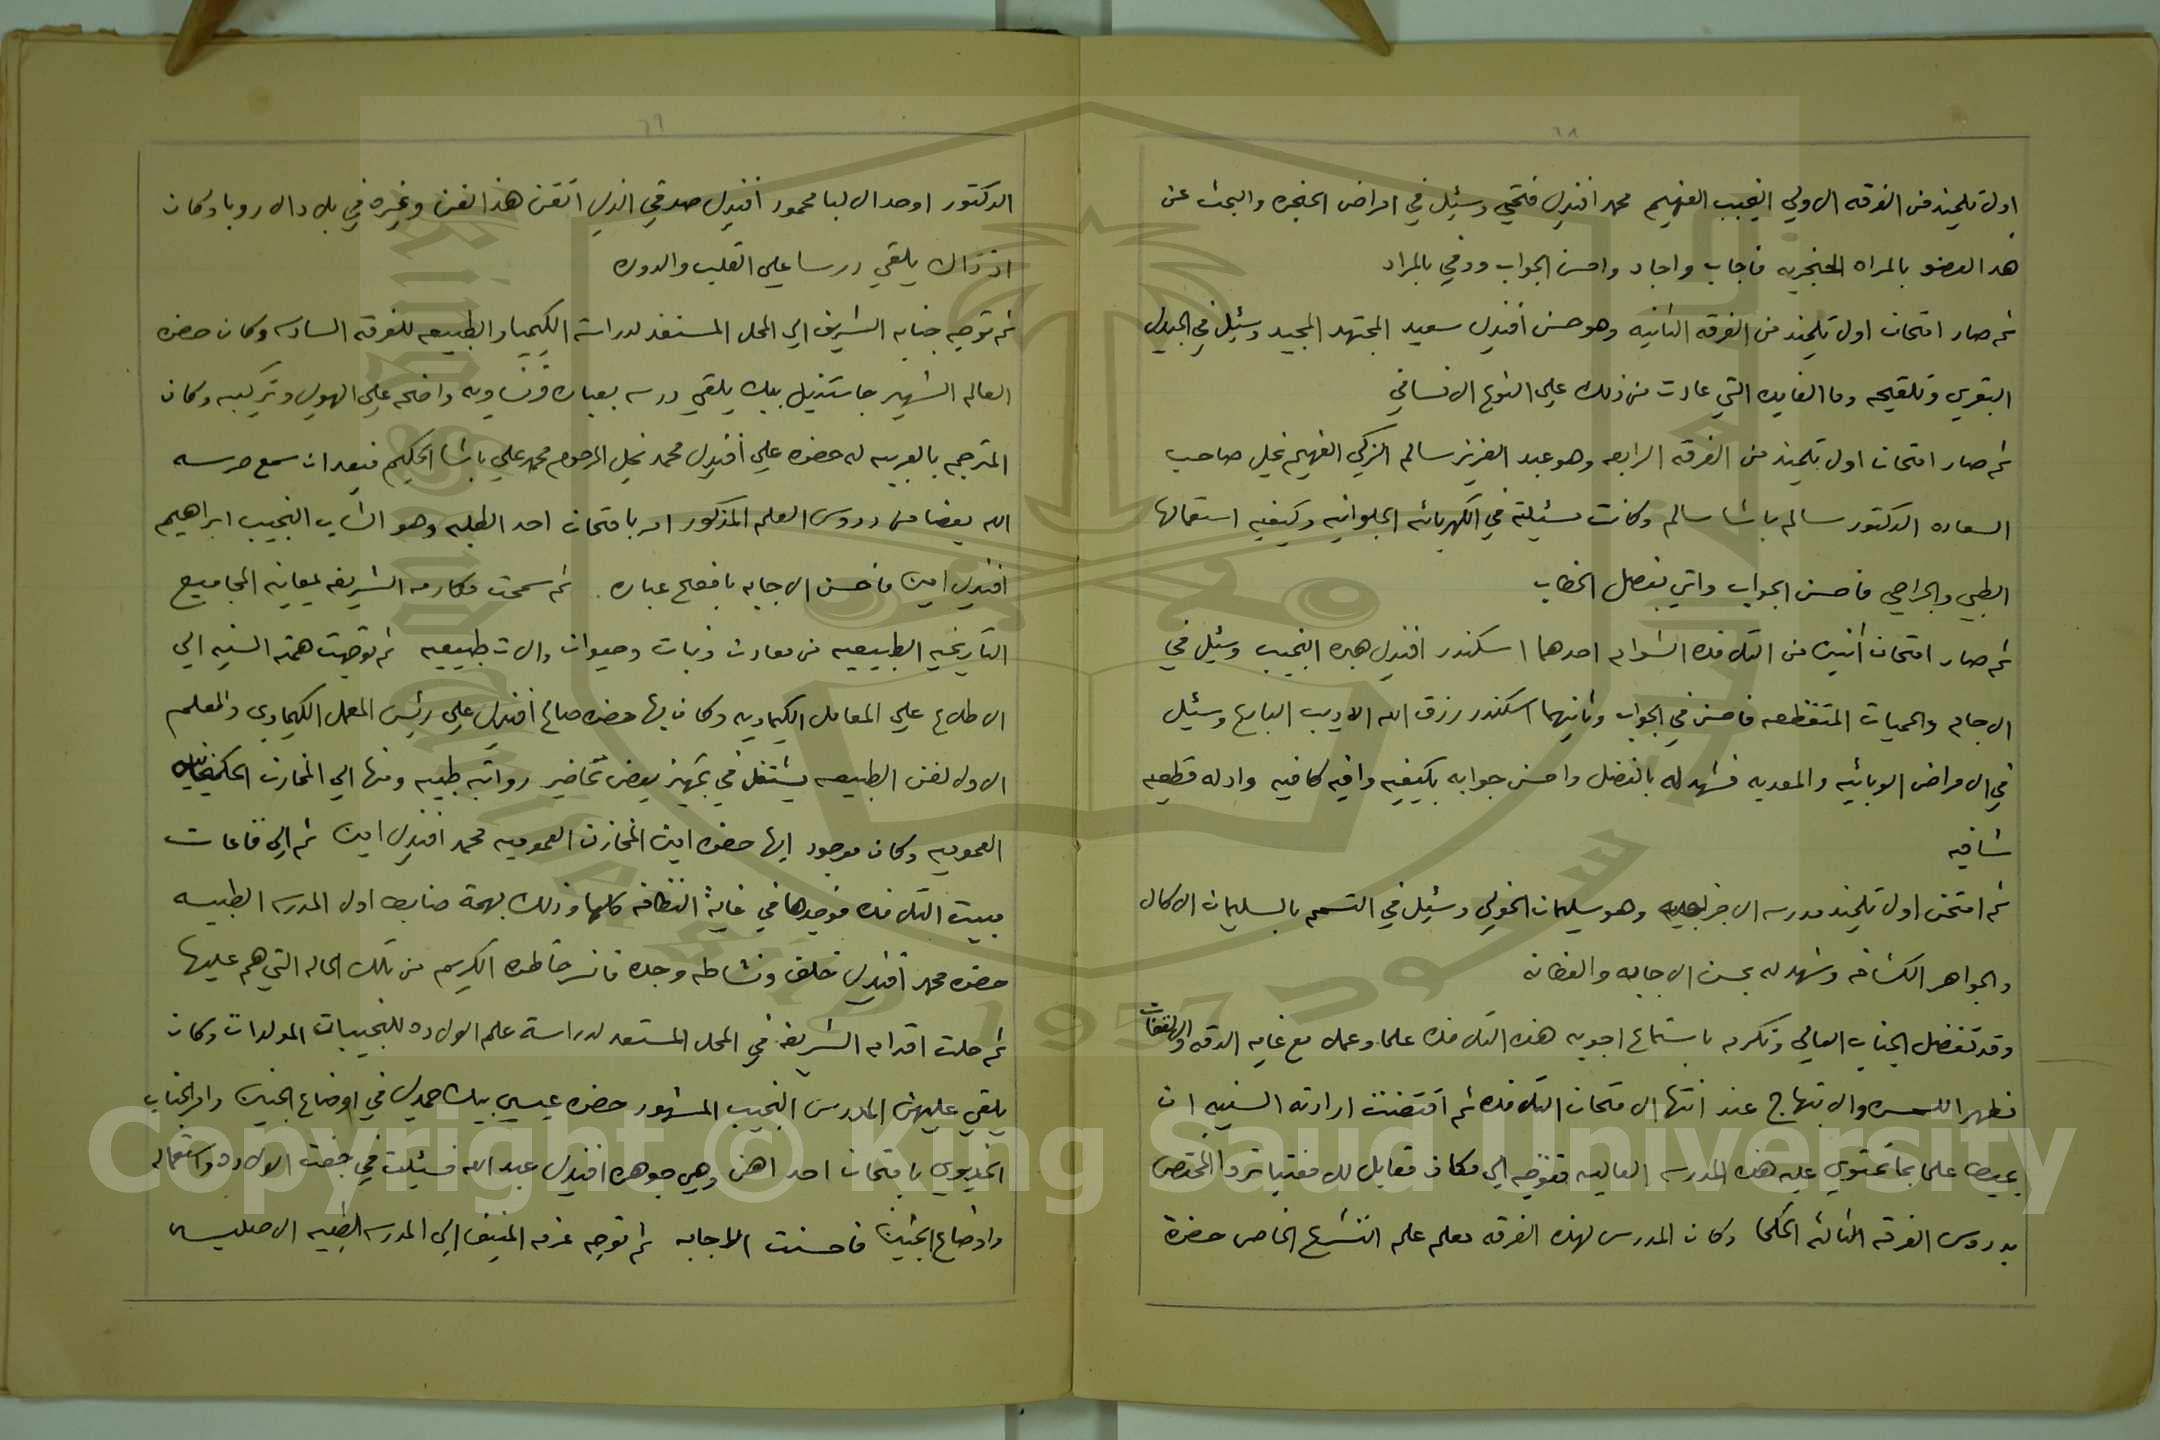 ٦٨
اول تلميذ من الفرقه الاولي النجيب الفهيم محمد افندي فتحي وسئل في امراض الحنجره والبحث عن
هذا العضو بالمراه الحنجريه فاجاب واجاد واحسن الجواب ووفي بالمراد
ثم صار امتحان اول تلميذ من الفرقه الثانيه وهو حسن افندي سعيد المجتهد المجيد وسئل في الجدري
البقري وتلقيحه وما الفايده التي عادت من ذلك علي النوع الانساني
ثم صار امتحان اول تلميذ من الفرقه الرابعه وهو عبد العزيز سالم الزكي الفهيم نجل صاحب
السعاده الدكتور سالم باشا سالم وكانت مسيئلته في الكهربائه الجلوانيه وكيفيه استعمالها
الطبي والجراحي فاحسن الجواب واتي بفصل الخطاب
ثم صار امتحان اثنين من التلامذه الشوام احدهما اسكندر افندي هبره النجيب وسئل في
الاجام والحميات المتقطعه فاحسن في الجواب وثانيهما اسكندر رزق الله الاديب البارع وسئل
في الامراض الوبائيه والمعديه فشهد له بالفضل واحسن جوابه بكيفيه وافيه كافيه وادله قطعيه
شافيه
ثم امتحن اول تلميذ مدرسه الاجزاجيه وهو سليمان الخولي وسئل في التسمم بالسليمان الاكال
والجواهر الكشافه وشهد له بحسن الاجابه والفطانه
وقد تفضل الجناب العالي وتكرم باستماع اجوبه هذه التلامذه علما وعملا مع غايه الدقه والالتفات
فظهر المسره والابتهاج عند انتها الامتحان التلامذه ثم اقتضت ارادته السنيه ان
يحيط علما بما تحتوي عليه هذه المدرسه العاليه فتوجه الي مكان مقابل للامفتياترو المختص
بدروس الفرقه الثالثه الحكما وكان المدرس لهذه الفرقه معلم علم التشريح الخاص حضرة
٦٩
الدكتور اوحد الالبا محمود افندي صدقي الذي اتقن هذا الفن وغيره في بلاد الاروبا وكان
اذ ذاك يلقي درسا علي القلب والدوره
ثم توجه جنابه الشريف الي المحل المستعد لدراسة الكيميا والطبيعه للفرقه السادسه وكان حضره
العالم الشهير جاستنيل بيك يلقي درسه بعباره فرنساويه واضحه علي الهوي وتركيبه وكان
المترجم بالعربيه له حضره علي افندي محمد نجل المرحوم محمد علي باشا الحكيم فبعد ان سمع حرسه
الله بعضا من دروس العلم المذكور امر بامتحان احد الطلبه وهو الشاب النجيب ابراهيم
افندي امين فاحسن الاجابه بافصح عباره . ثم سمحت مكارمه الشريفه لمعاينه المجاميع
التاريخيه الطبيعيه من معادن ونبات وحيوان والات طبيعيه ثم توجهت همته السنيه الي
الاطلاع علي المعامل الكيماويه وكان بها حضره صالح افندي علي رئيس المعمل الكيماوي والمعلم
الاول لفن الطبيعه يشتغل في تجهيز بعض تحاضير رواتبه طبيه ومنها الي المخازن
العموميه وكان موجود ايها حضره امين المخازن العموميه محمد افندي امين ثم الي قاعات
مبيت التلامذه فوجدها في غاية النظافه كلها وذلك بهمة ضابط اول المدرسه الطبيه
حضره محمد افندي خلف ونشاطه وجده فانسر خاطره الكريم من تلك الحاله التي هم عليها
ثم حلت اقدامه الشريفه في المحل المستعد لدراسة علم الولاده للنجيبات المولدات وكان
يلقي عليهن المدرس النجيب المشهور حضره عيسي بيك حمدي في اوضاع الجنين وامر الجناب
الخديوي بامتحان احداهن وهي جوهره افندي عبد الله فسئلت في جفت الولاده واستعماله
واوضاع الجنين فاحسنت الاجابه ثم توجه عزمه المنيف الي المدرسه الطبيه الاصليه
Copyright © King Saud University
1957